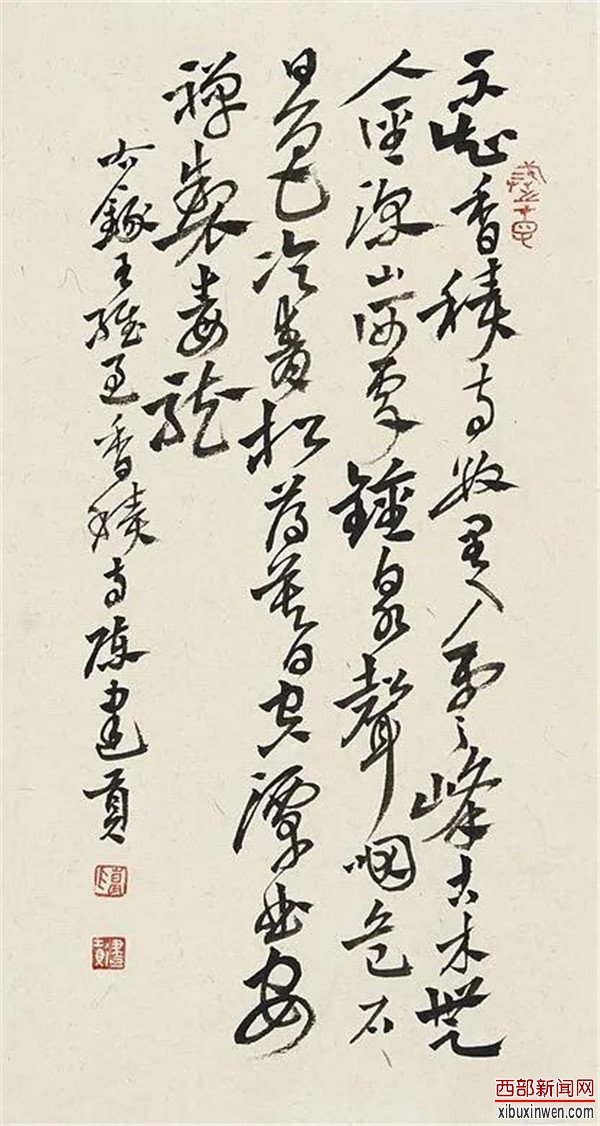 不知香積寺數里入雲峰古木無
人徑深山何處鐘泉聲咽危石
日色冷青松薄暮空潭曲安
禪製毒龍
右錄王維過香積寺陳建貢
西部新闻网
xibuxinwen.com